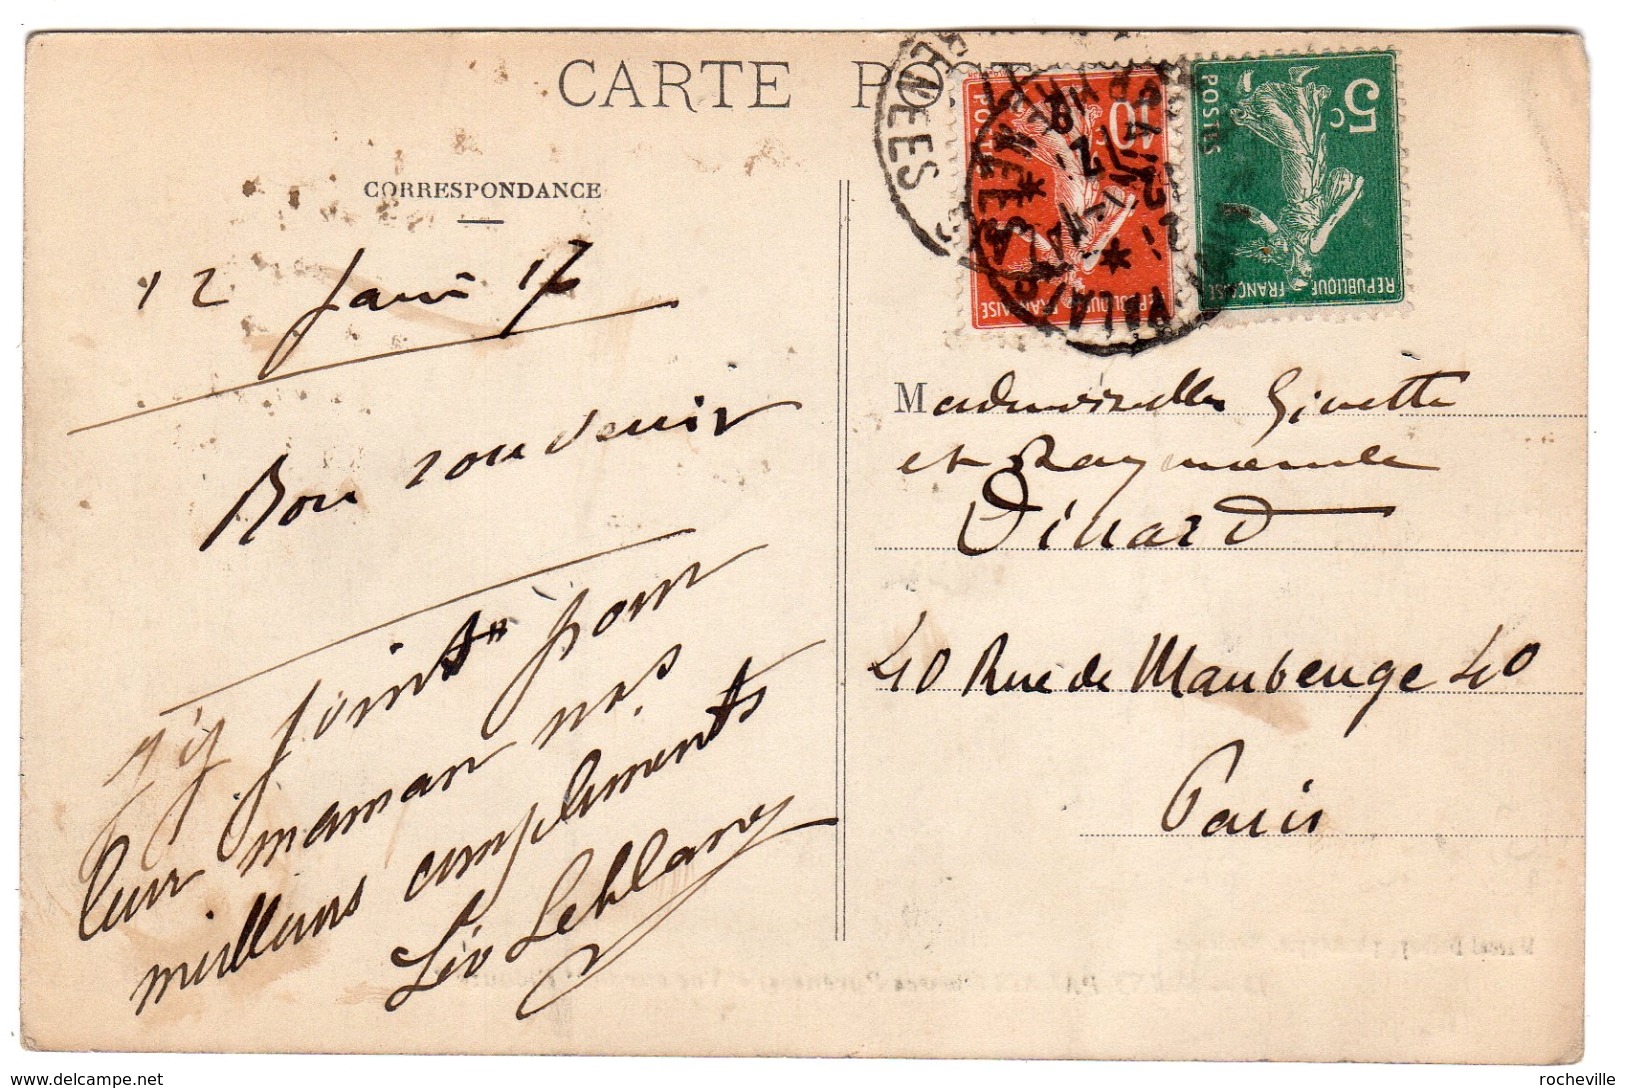 CARTE POST
CORRESPONDANCE
12 Janv 17
Bon souvenir
j'y joins pour
leur maman mes
meilleurs compliments
Léo Leblanc
Mademoiselles Ginette
et Raymonde
Dinard
40 Rue de Maubenge 40
Paris
10c
POSTES
REPUBLIQUE FRANÇAISE
5c
POSTES
REPUBLIQUE FRANÇAISE
delcampe.net
rocheville